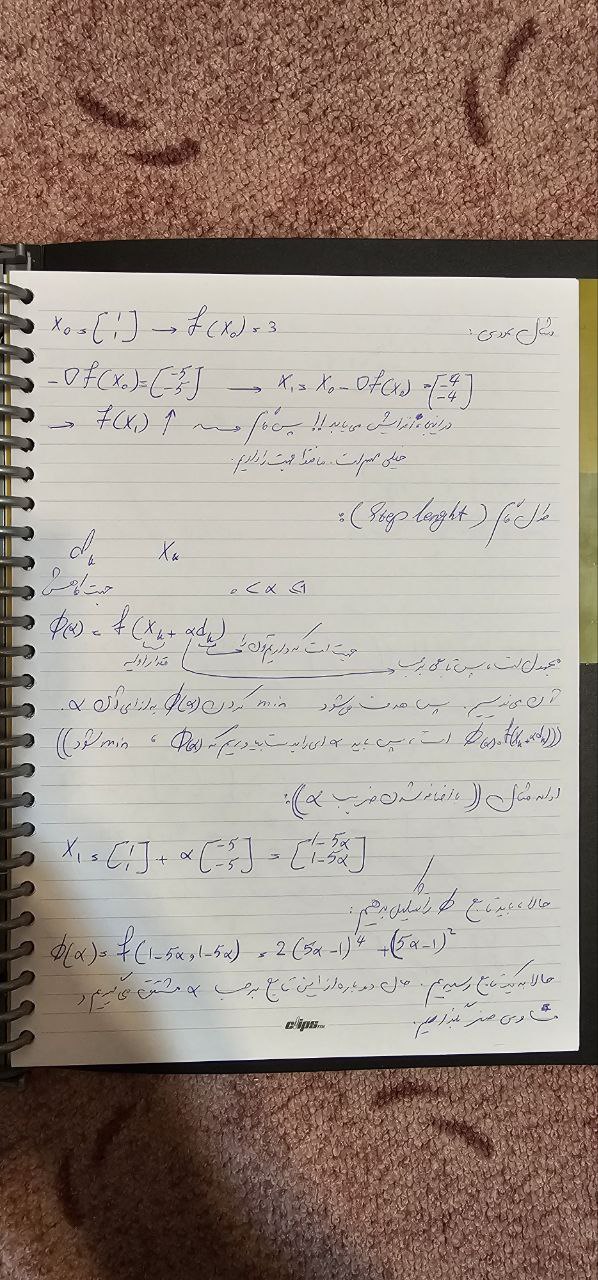 مثال عددی:
X₀ = [1 1] → f(X₀) = 3
-∇f(X₀) = [-5 -5] → X₁ = X₀ - ∇f(X₀) = [-4 -4]
→ f(X₁) ↑ در اینجا، افزایش می‌یابد!! پس گام
خیلی مهم است. ما فقط جهت را داریم.
طول گام (Step lenght):
dₖ Xₖ
جهت کاهش 0 < α ≤ 1
Φ(α) = f(Xₖ + αdₖ)
جهت است که داریم آن را
مقدار اولیه
مجهول است، پس تابعی برحسب
آن می‌نویسیم. پس هدف می‌شود min کردن Φ(α) به ازای آن α.
((Φ(α) = f(Xₖ + αdₖ) است، پس باید α ای را بدست بیاوریم که Φ(α)، min شود))
ادامه مثال ((با اضافه شدن ضریب α)):
X₁ = [1 1] + α [-5 -5] = [1-5α 1-5α]
حالا، باید تابع Φ را تشکیل بدهیم:
Φ(α) = f(1-5α, 1-5α) = 2(5α-1)⁴ + (5α-1)²
حالا به یک تابع رسیدیم. حال دوباره از این تابع برحسب α مشتق می‌گیریم و
مساوی صفر بگذاریم.
clips